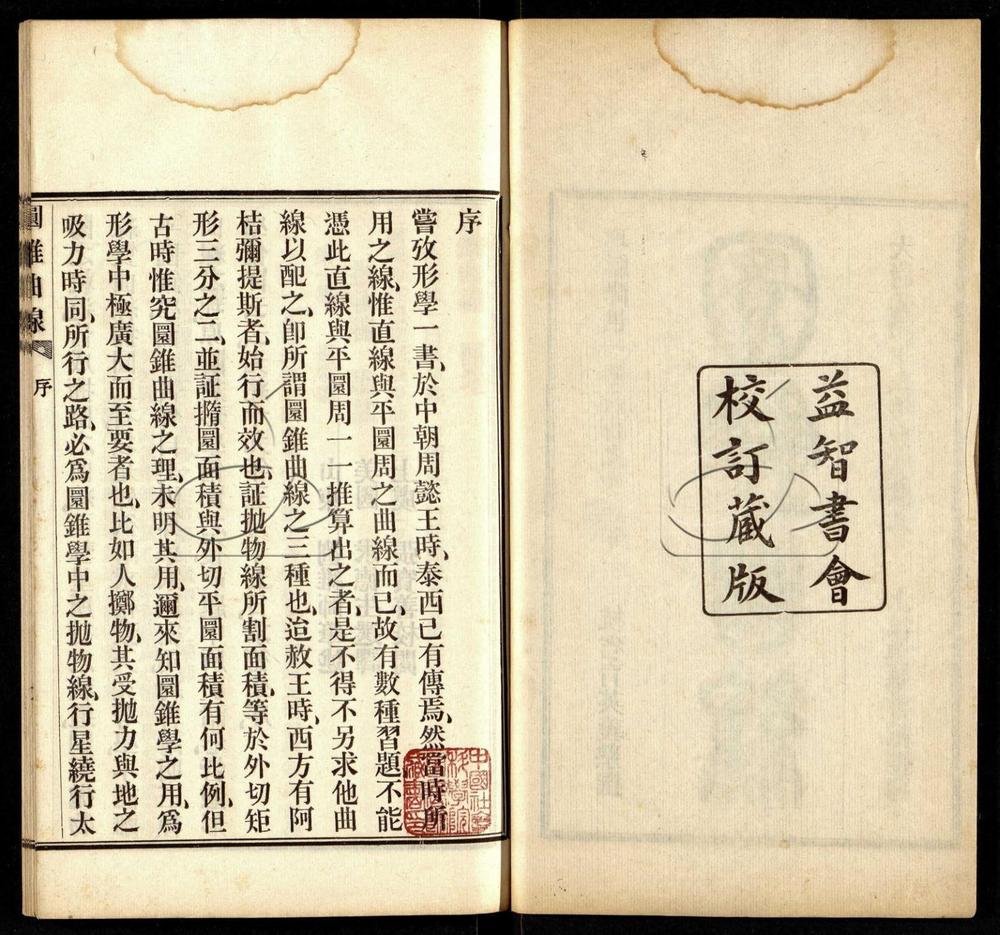 益智書會
校訂藏版
序
嘗攷形學一書、於中朝周懿王時、泰西已有傳焉、然當時所
用之線、惟直線與平圜周之曲線而已、故有數種習題不能
憑此直線與平圜周一一推算出之者、是不得不另求他曲
線以配之、卽所謂圜錐曲線之三種也、迨赧王時、西方有阿
桔彌提斯者、始行而效也、証拋物線所割面積、等於外切矩
形三分之二、並証撱圜面積與外切平圜面積有何比例、但
古時惟究圜錐曲線之理、未明其用、邇來知圜錐學之用、爲
形學中極廣大而至要者也、比如人擲物、其受拋力與地之
吸力時同、所行之路、必爲圜錐學中之拋物線、行星繞行太
圓錐曲線
序